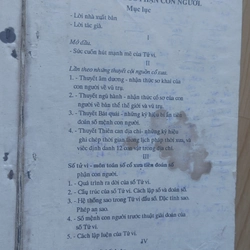 CON NGƯỜI
Mục lục
- Lời nhà xuất bản
- Lời tác giả.
I
Mở đầu.
- Sức cuốn hút mạnh mẽ của Tử vi.
II
Lần theo những thuyết cội nguồn cổ xưa.
1. - Thuyết âm dương - nhận thức sơ khai của
con người về vũ trụ.
2. - Thuyết ngũ hành - nhận thức cổ sơ của con
người về bản thể thế giới và vũ trụ.
3. - Thuyết Bát quái - những ký hiệu để tiên
đoán số mệnh con người.
4. - Thuyết Thiên can địa chi - những ký hiệu
ghi chép thời gian trong lịch pháp thời cổ, và
việc định danh 12 con vật trong địa chi.
III
Số tử vi - môn toán số cổ xưa tiên đoán số
phận con người.
1. - Quá trình ra đời của số Tử vi.
2. - Cấu trúc của số Tử vi. Cách lập và đoán số.
3. - Hệ thống sao trong Tử vi đẩu số. Đặc tính sao.
Phép an sao.
4. - Số mệnh con người trước thuật giải đoán của
số Tử vi.
5. - Cách lập hiện của Tử vi.
IV